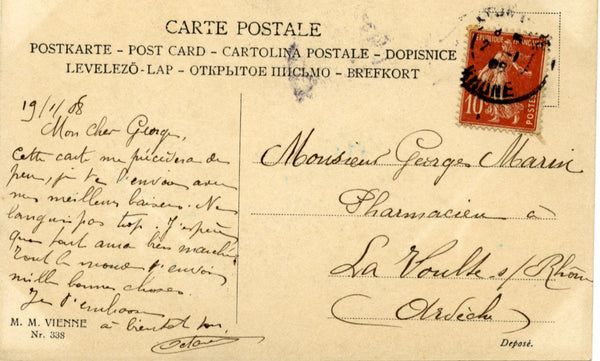 CARTE POSTALE
POSTKARTE – POST CARD – CARTOLINA POSTALE – DOPISNICE
LEVELEZŐ-LAP – ОТКРЫТОЕ ПИСЬМО – BREFKORT
RÉPUBLIQUE FRANÇAISE
10
POSTES
RHONE
19/1/08
Mon cher Georges,
Cette carte me précédera de
peu, je te l'envoie avec
mes meilleurs baisers. Ne
languis pas trop. J'espère
que tout aura bien marché
Tout le monde t'envoie
mille bonnes choses.
Je t'embrasse
à bientôt ton
Monsieur Georges Marin
Pharmacien à
La Voulte s/ Rhône
(Ardèche)
M. M. VIENNE
Nr. 338
Deposé.